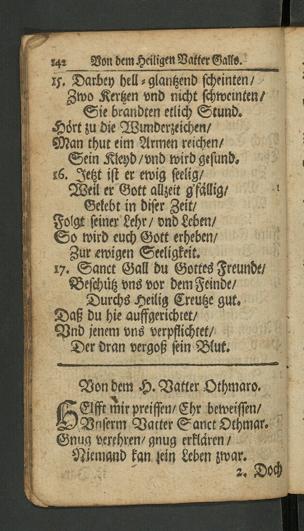 242 Von dem Heiligen Vatter Galls.
15. Darbey hell-glantzend scheinten/
Zwo Kertzen vnd nicht schweinten/
Sie brandten etlich Stund.
Hört zu die Wunderzeichen/
Man thut eim Armen reichen/
Sein Kleyd/ vnd wird gesund.
16. Jetzt ist er ewig seelig/
Weil er Gott allzeit g'fällig/
Gelebt in diser Zeit/
Folgt seiner Lehr/ vnd Leben/
So wird euch Gott erheben/
Zur ewigen Seeligkeit.
17. Sanct Gall du Gottes Freunde/
Beschütz vns vor dem Feinde/
Durchs Heilig Creutze gut.
Daß du hie auffgerichtet/
Vnd jenem vns verpflichtet/
Der dran vergoß sein Blut.
Von dem H. Vatter Othmaro.
HElfft mir preissen/ Ehr beweissen/
Vnserm Vatter Sanct Othmar.
Gnug verehren/ gnug erklären/
Niemand kan sein Leben zwar.
2. Doch